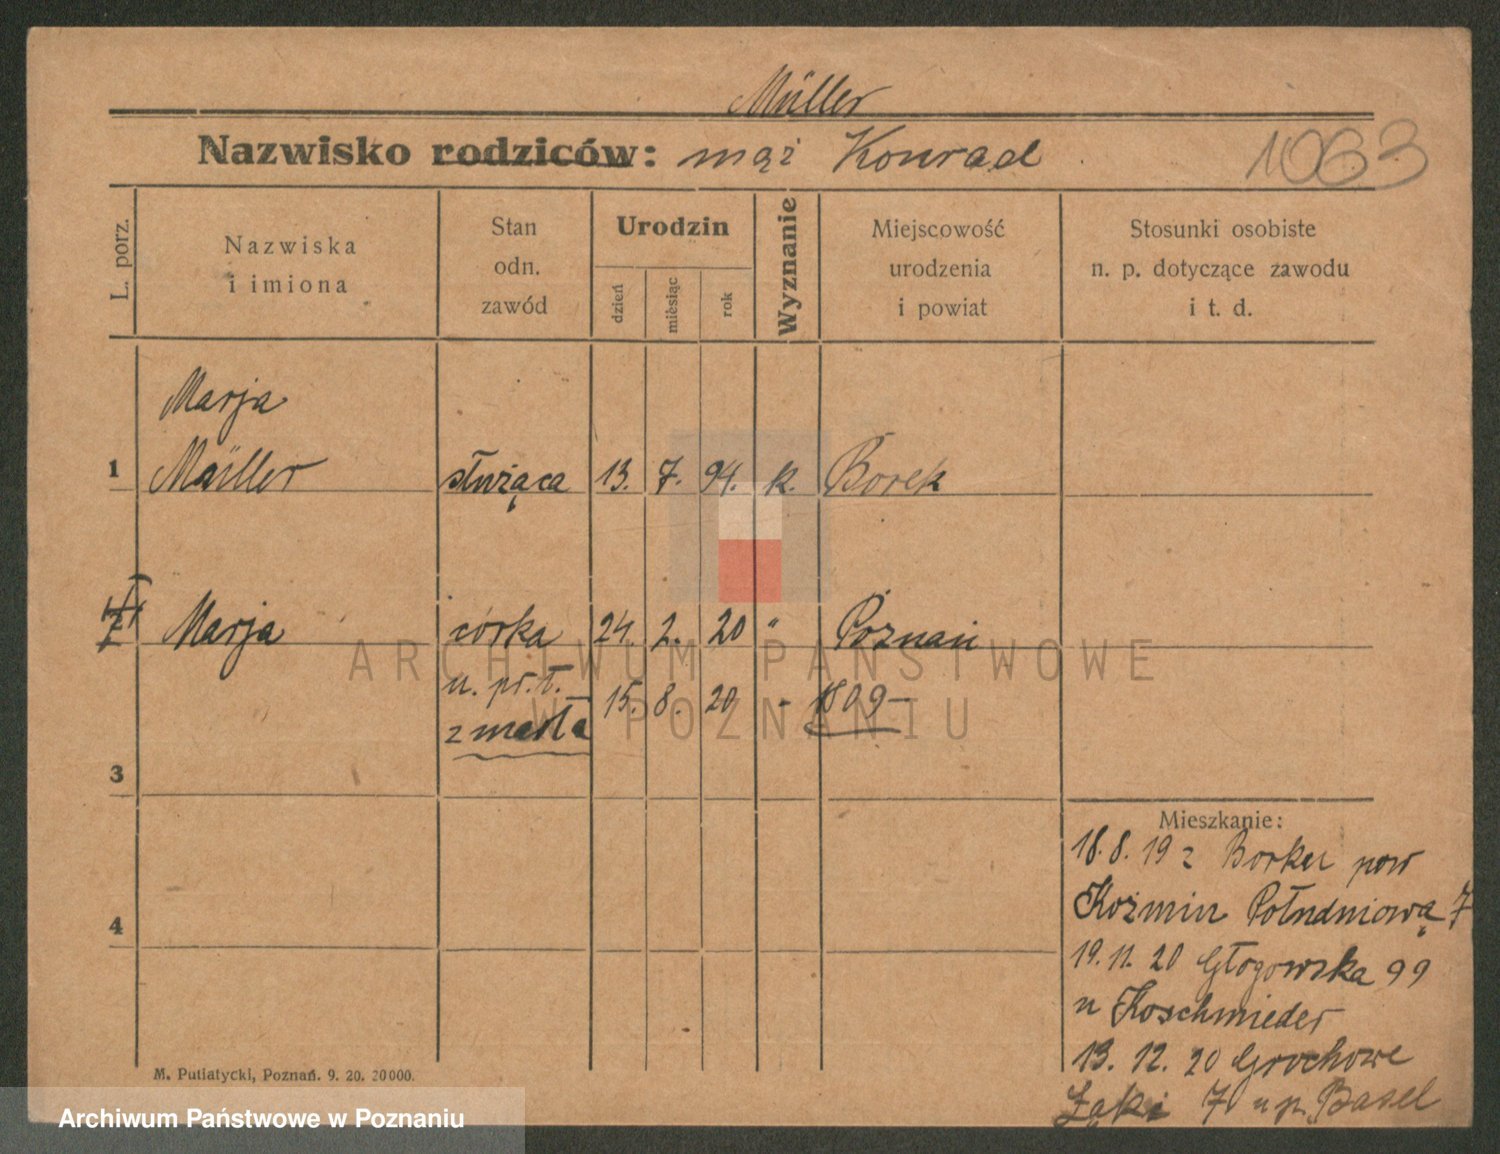 Müller
Nazwisko rodziców: mąż Konrad
1063
L. porz.
Nazwiska
i imiona
Stan
odn.
zawód
Urodzin
dzień
miesiąc
rok
Wyznanie
Miejscowość
urodzenia
i powiat
Stosunki osobiste
n. p. dotyczące zawodu
i t. d.
Marja
1 Müller służąca 13. 7. 94. k. Borek
2 Marja córka 24. 2. 20 " Poznań
15. 8. 20 - 1809 -
zmarła
3
4
Mieszkanie:
18. 8. 19 z Borku pow
Koźmin Południowa 7
19. 11. 20 Głogowska 99
u Koschmieder
13. 12. 20 Grochowe
Łąki 7 u p. Basel
M. Putiatycki, Poznań. 9. 20. 20000.
ARCHIWUM PAŃSTWOWE
W POZNANIU
Archiwum Państwowe w Poznaniu